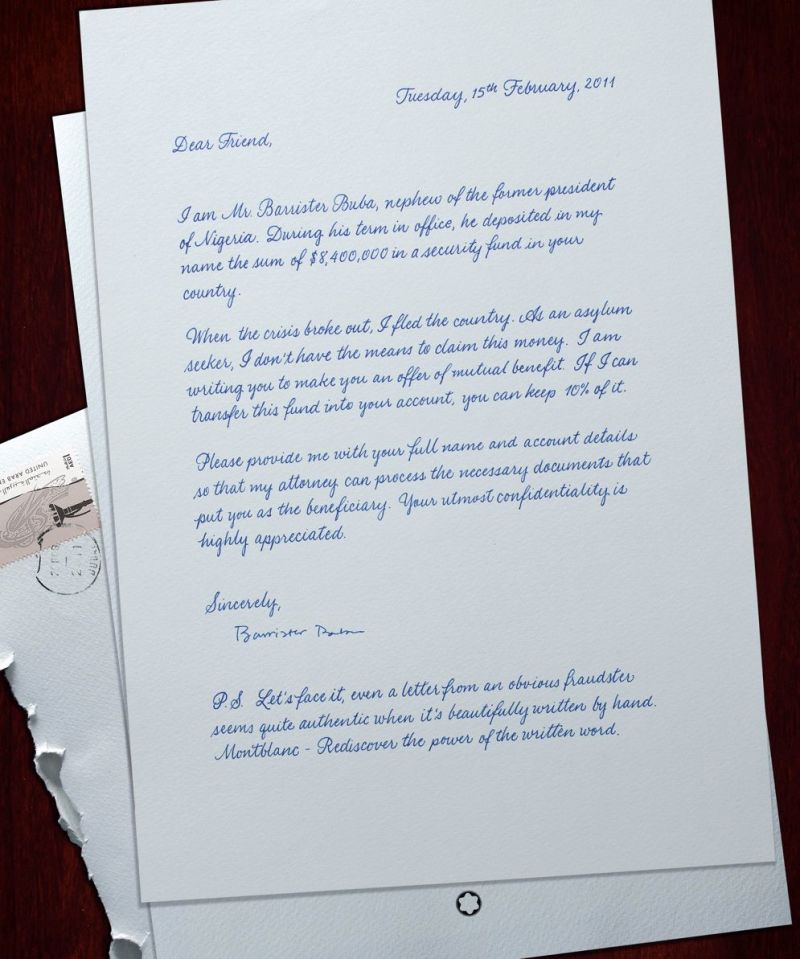 Tuesday, 15th February, 2011
Dear Friend,
I am Mr. Barrister Buba, nephew of the former president
of Nigeria. During his term in office, he deposited in my
name the sum of $8,400,000 in a security fund in your
country.
When the crisis broke out, I fled the country. As an asylum
seeker, I don't have the means to claim this money. I am
writing you to make you an offer of mutual benefit. If I can
transfer this fund into your account, you can keep 10% of it.
Please provide me with your full name and account details
so that my attorney can process the necessary documents that
put you as the beneficiary. Your utmost confidentiality is
highly appreciated.
Sincerely,
Barrister Buba
P.S. Let's face it, even a letter from an obvious fraudster
seems quite authentic when it's beautifully written by hand.
Montblanc - Rediscover the power of the written word.
UNITED ARAB